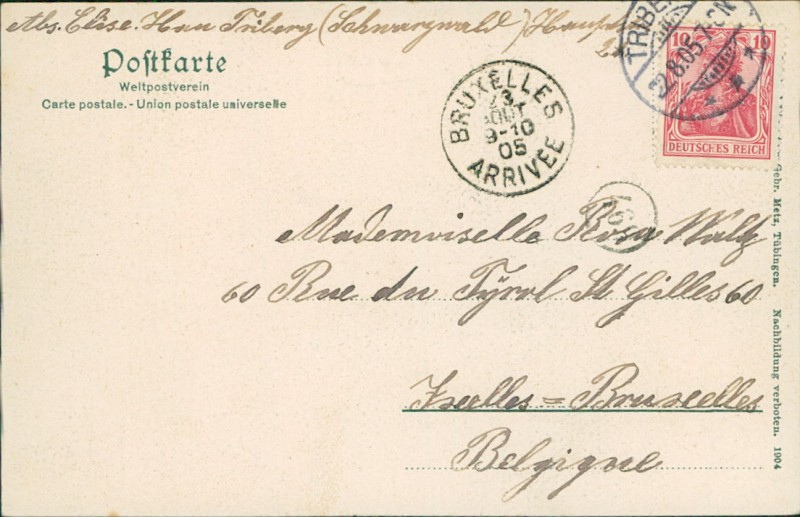 Abs. Elise. Han Triberg (Schwarzwald) Haupt
Postkarte
Weltpostverein
Carte postale. - Union postale universelle
BRUXELLES
23
AOUT
9-10
05
ARRIVÉE
TRIBE
22.8.05.
10 10
DEUTSCHES REICH
Mademoiselle Rosa Waltz
60 Rue du Tyrol St Gilles 60
Ixelles = Bruxelles
Belgique
Gebr. Metz, Tübingen. Nachbildung verboten. 1904